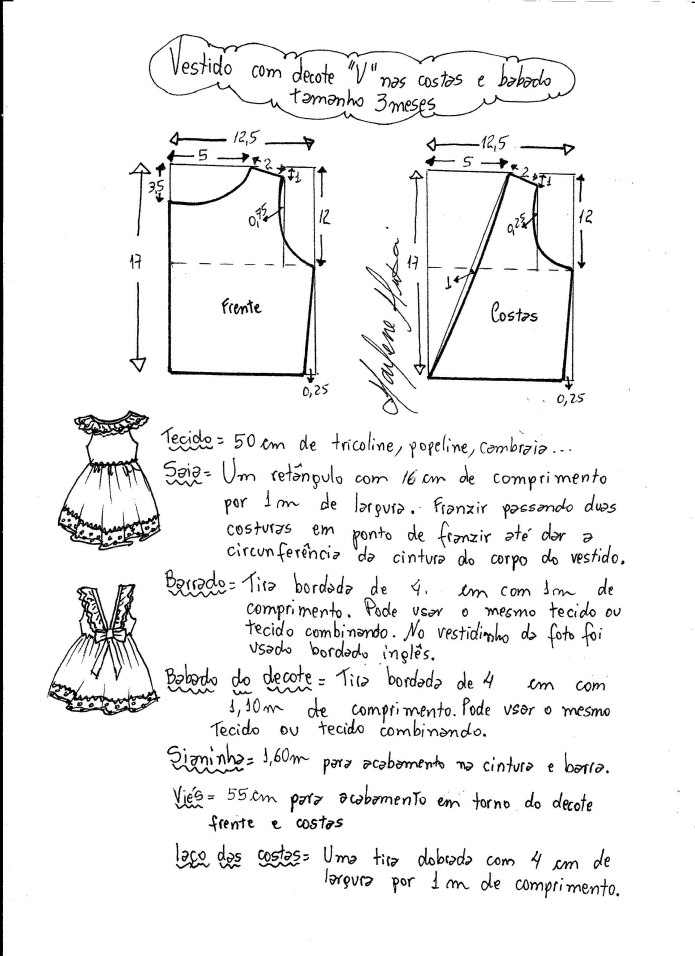 Vestido com decote "V" nas costas e babado
tamanho 3 meses
12,5
5
2
1
3,5
0,75
12
17
Frente
0,25
12,5
5
2
1
0,25
12
17
1
Costas
0,25
Marlene Mukai
Tecido = 50 cm de tricoline, popeline, cambraia...
Saia = Um retângulo com 16 cm de comprimento
por 1 m de largura. Franzir passando duas
costuras em ponto de franzir até dar a
circunferência da cintura do corpo do vestido.
Barrado = Tira bordada de 4. cm com 1m de
comprimento. Pode usar o mesmo tecido ou
tecido combinando. No vestidinho da foto foi
usado bordado inglês.
Babado do decote = Tira bordada de 4 cm com
1,10m de comprimento. Pode usar o mesmo
Tecido ou tecido combinando.
Sianinha = 1,60m para acabamento na cintura e barra.
Viés = 55 cm para acabamento em torno do decote
frente e costas
laço das costas = Uma tira dobrada com 4 cm de
largura por 1 m de comprimento.